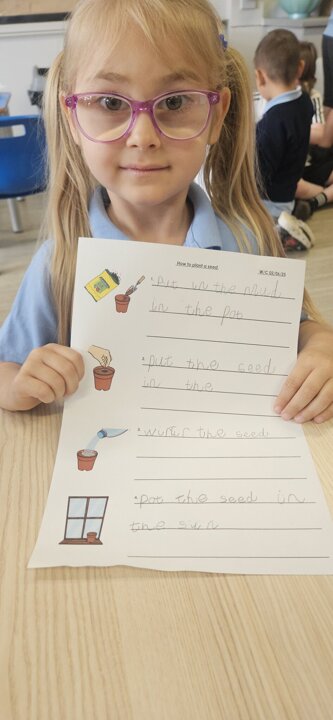 How to plant a seed
W/C 02/06/25
1. Pit in the mud
in the pot
2. put the seed
in the
3. wuter the seed
4. pot the seed in
the sun